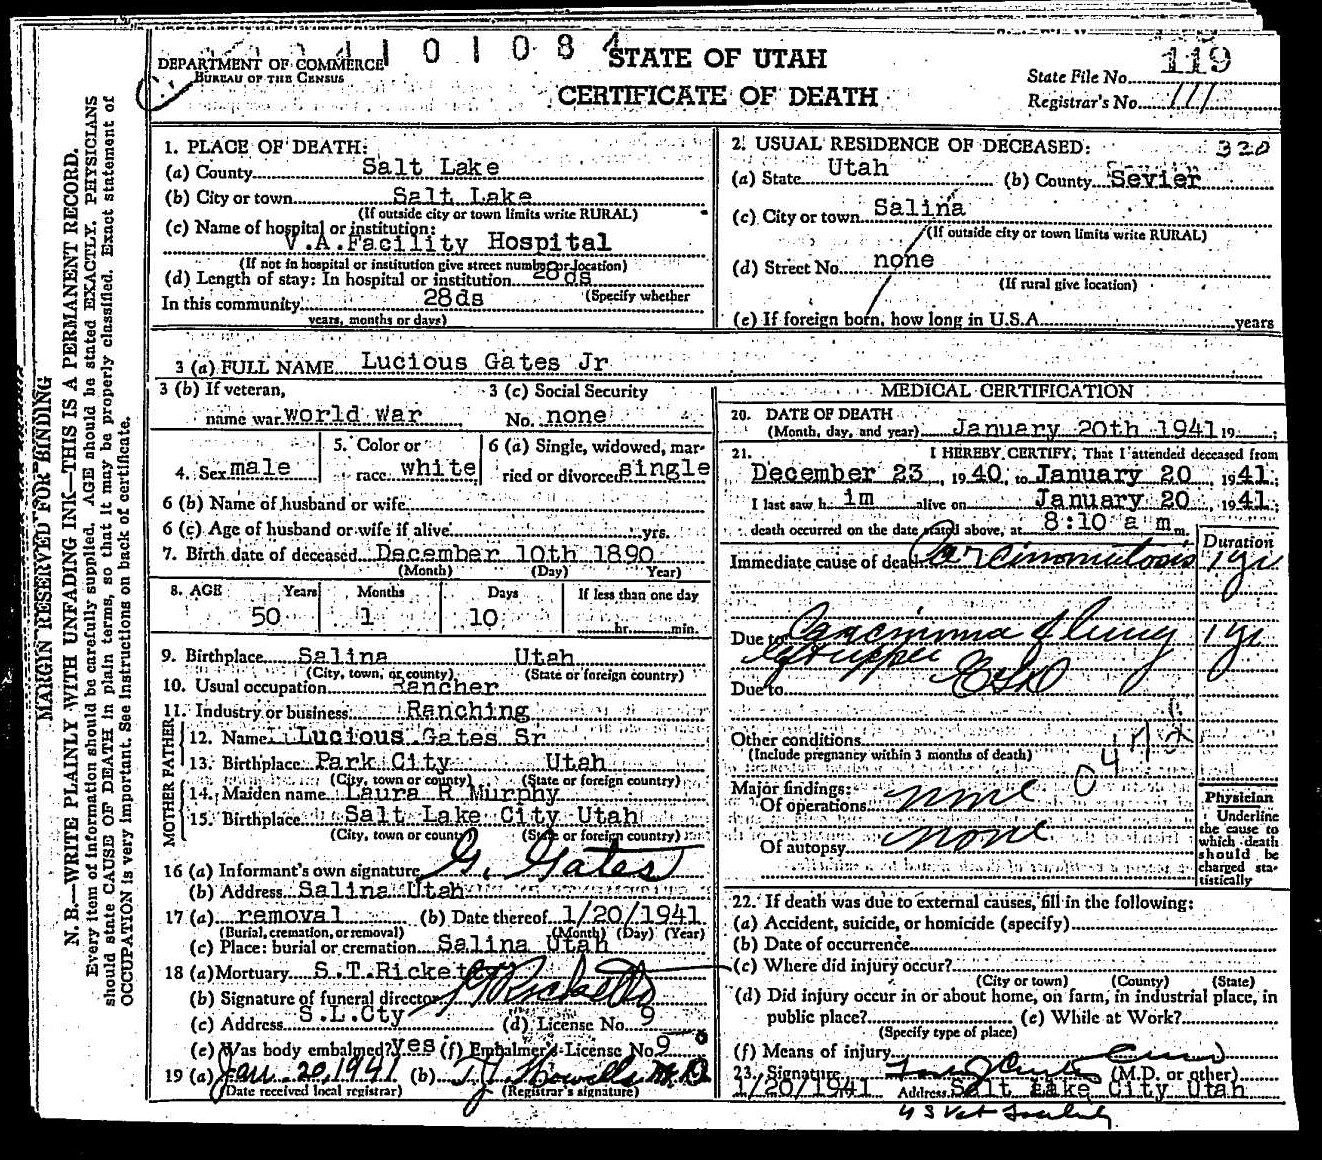 DEPARTMENT OF COMMERCE
BUREAU OF THE CENSUS
1 0 1 0 8 4
STATE OF UTAH
CERTIFICATE OF DEATH
State File No. 119
Registrar's No. 111
MARGIN RESERVED FOR BINDING
N. B.—WRITE PLAINLY WITH UNFADING INK—THIS IS A PERMANENT RECORD.
Every item of information should be carefully supplied. AGE should be stated EXACTLY. PHYSICIANS
should state CAUSE OF DEATH in plain terms, so that it may be properly classified. Exact statement of
OCCUPATION is very important. See instructions on back of certificate.
1. PLACE OF DEATH:
(a) County Salt Lake
(b) City or town Salt Lake
(If outside city or town limits write RURAL)
(c) Name of hospital or institution:
V.A.Facility Hospital
(If not in hospital or institution give street number or location)
(d) Length of stay: In hospital or institution 28 ds
In this community 28ds (Specify whether
years, months or days)
2. USUAL RESIDENCE OF DECEASED: 320
(a) State Utah (b) County Sevier
(c) City or town Salina
(If outside city or town limits write RURAL)
(d) Street No. none
(If rural give location)
(e) If foreign born, how long in U.S.A. years
3 (a) FULL NAME Lucious Gates Jr
3 (b) If veteran, name war world war
3 (c) Social Security No. none
4. Sex male
5. Color or race white
6 (a) Single, widowed, married or divorced single
6 (b) Name of husband or wife
6 (c) Age of husband or wife if alive yrs.
7. Birth date of deceased December 10th 1890
(Month) (Day) Year)
8. AGE Years Months Days If less than one day
50 1 10 hr. min.
9. Birthplace Salina Utah
(City, town, or county) (State or foreign country)
10. Usual occupation Rancher
11. Industry or business Ranching
FATHER
12. Name Lucious Gates Sr
13. Birthplace Park City Utah
(City, town or county) (State or foreign country)
MOTHER
14. Maiden name Laura R Murphy
15. Birthplace Salt Lake City Utah
(City, town or county) (State or foreign country)
16 (a) Informant's own signature G. Gates
(b) Address Salina Utah
17 (a) removal (b) Date thereof 1/20/1941
(Burial, cremation, or removal) (Month) (Day) (Year)
(c) Place: burial or cremation Salina Utah
18 (a) Mortuary S.T.Rickets
(b) Signature of funeral director Ricketts
(c) Address S.L.Cty (d) License No. 9
(e) Was body embalmed? yes (f) Embalmer's License No. 9
19 (a) Jan. 20, 1941 (b) T J Howells M.D.
(Date received local registrar) (Registrar's signature)
MEDICAL CERTIFICATION
20. DATE OF DEATH
(Month, day, and year) January 20th 1941 19 ;
21. I HEREBY CERTIFY, That I attended deceased from
December 23, 1940, to January 20, 1941;
I last saw h im alive on January 20, 1941;
death occurred on the date stated above, at 8:10 a m m.
Duration
Immediate cause of death Carcinomatosis 1 yr
Due to Carcinoma of lung 1 yr
Due to
Other conditions
(Include pregnancy within 3 months of death)
047
Major findings:
Of operations none
Of autopsy none
Physician
Underline
the cause to
which death
should be
charged sta-
tistically
22. If death was due to external causes, fill in the following:
(a) Accident, suicide, or homicide (specify)
(b) Date of occurrence
(c) Where did injury occur?
(City or town) (County) (State)
(d) Did injury occur in or about home, on farm, in industrial place, in
public place? (e) While at Work?
(Specify type of place)
(f) Means of injury
23. Signature (M.D. or other)
1/20/1941 Address Salt Lake City Utah
U S Vet Facility